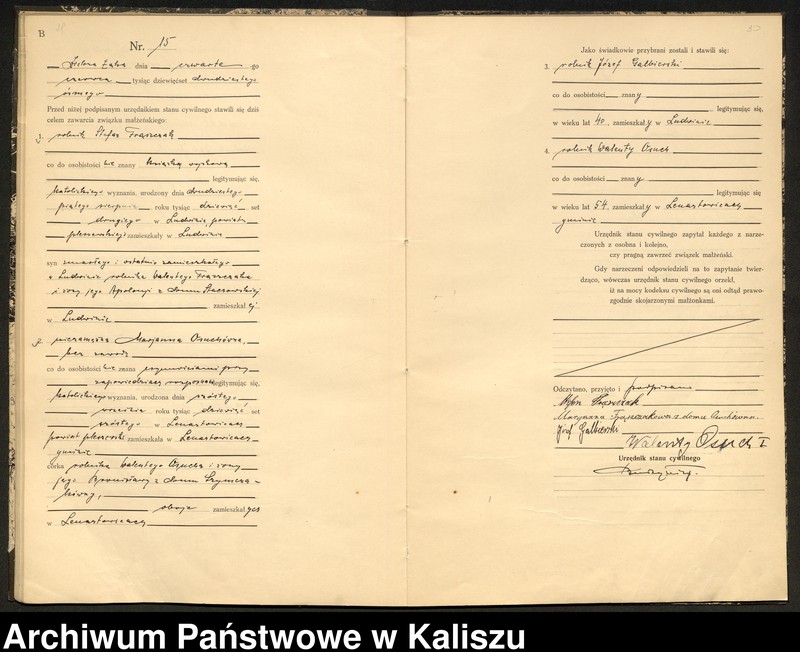 B
Nr. 15
Zielona Łąka dnia czwartego
czerwca tysiąc dziewięćset dwudziestego
ósmego
Przed niżej podpisanym urzędnikiem stanu cywilnego stawili się dziś
celem zawarcia związku małżeńskiego:
1. rolnik Stefan Frąszczak
co do osobistości znany książką wojskową
legitymując się,
katolickiego wyznania, urodzony dnia dwudziestego
piątego sierpnia roku tysiąc dziewięć set
drugiego w Ludwinie, powiatu
pleszewskiej zamieszkały w Ludwinie
syn zmarłego i ostatnio zamieszkałego
w Ludwinie rolnika Walentego Frąszczaka
i żony jego Apolonji z domu
zamieszkałej
w Ludwinie
2. niezamężna Marjanna Osuchówna,
bez zawodu
co do osobistości znana
zapowiedziach legitymując się,
katolickiego wyznania, urodzona dnia szóstego
września roku tysiąc dziewięć set
szóstego w Lenartowicach
powiat pleszewski zamieszkała w Lenartowicach
gminie
córka rolnika Walentego Osucha i żony
jego z domu Szymcza-
kówny,
oboje zamieszkałych
w Lenartowicach
Jako świadkowie przybrani zostali i stawili się:
3. rolnik Józef Galbierski
co do osobistości znany
legitymując się,
w wieku lat 40, zamieszkały w Ludwinie
4. rolnik Walenty Osuch
co do osobistości znany
legitymując się
w wieku lat 54, zamieszkały w Lenartowicach
gminie
Urzędnik stanu cywilnego zapytał każdego z narze-
czonych z osobna i kolejno,
czy pragną zawrzeć związek małżeński.
Gdy narzeczeni odpowiedzieli na to zapytanie twier-
dząco, wówczas urzędnik stanu cywilnego orzekł,
iż na mocy kodeksu cywilnego są oni odtąd prawo-
zgodnie skojarzonymi małżonkami.
Odczytano, przyjęto i podpisano
Frąszczak
Marjanna Frąszczakowa z domu Osuchówna.
Józef Galbierski
Walenty Osuch I
Urzędnik stanu cywilnego
Archiwum Państwowe w Kaliszu